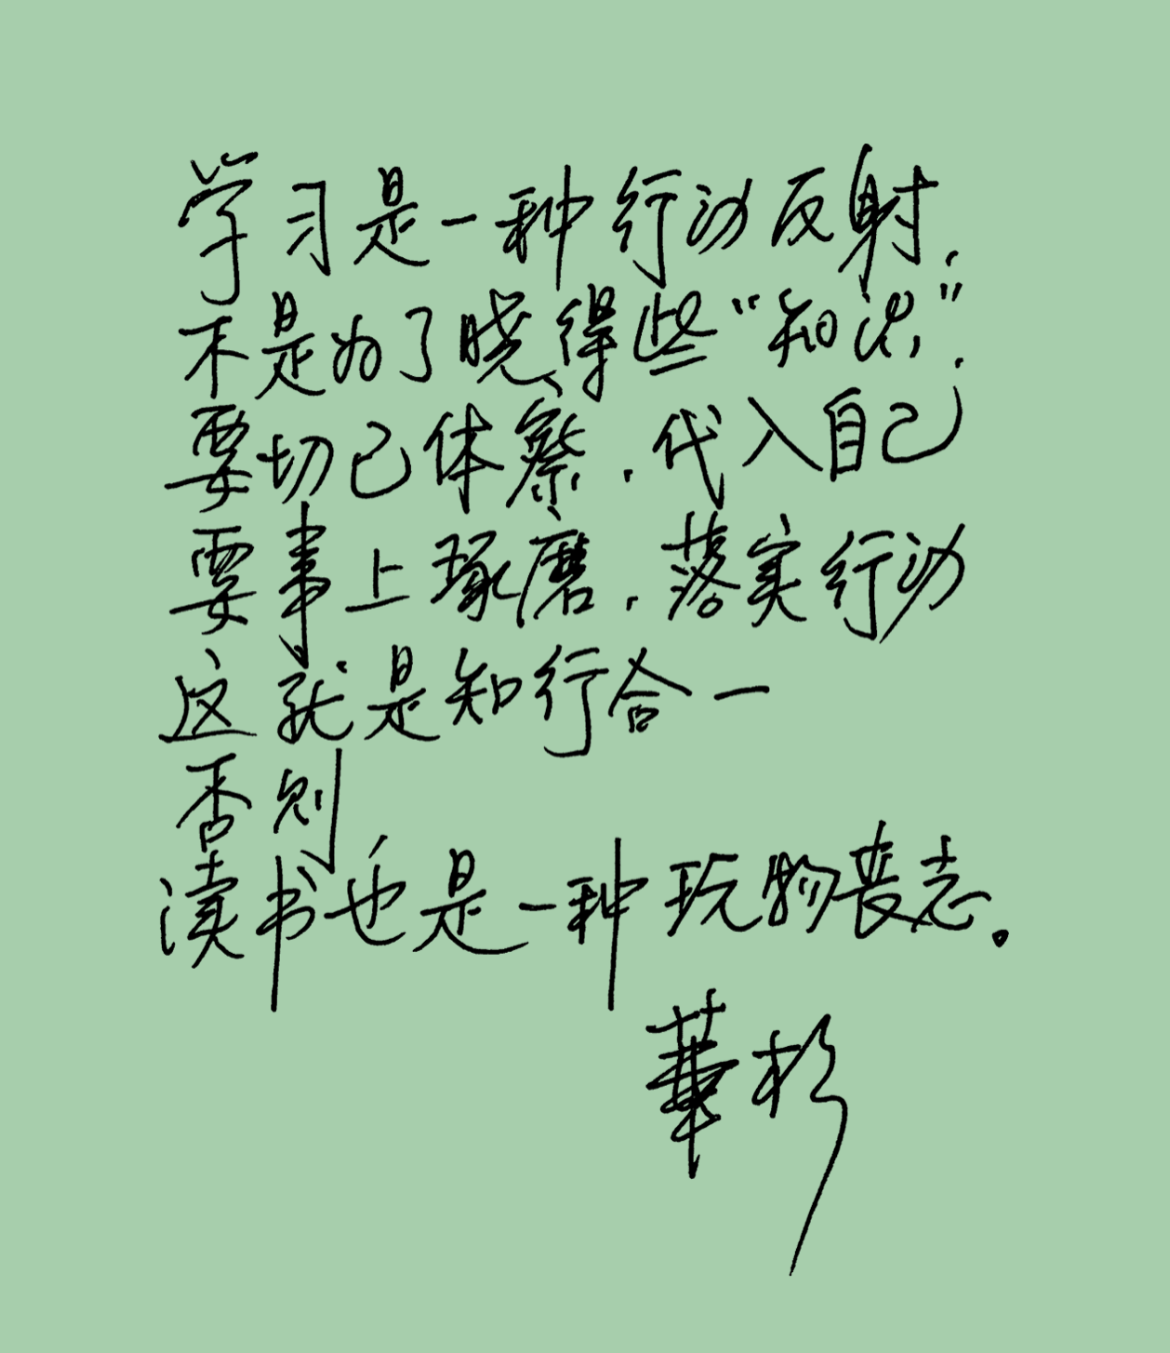 学习是一种行动反射,
不是为了晓得些“知识”.
要切己体察,代入自己
要事上琢磨,落实行动
这就是知行合一
否则
读书也是一种玩物丧志。
華杉